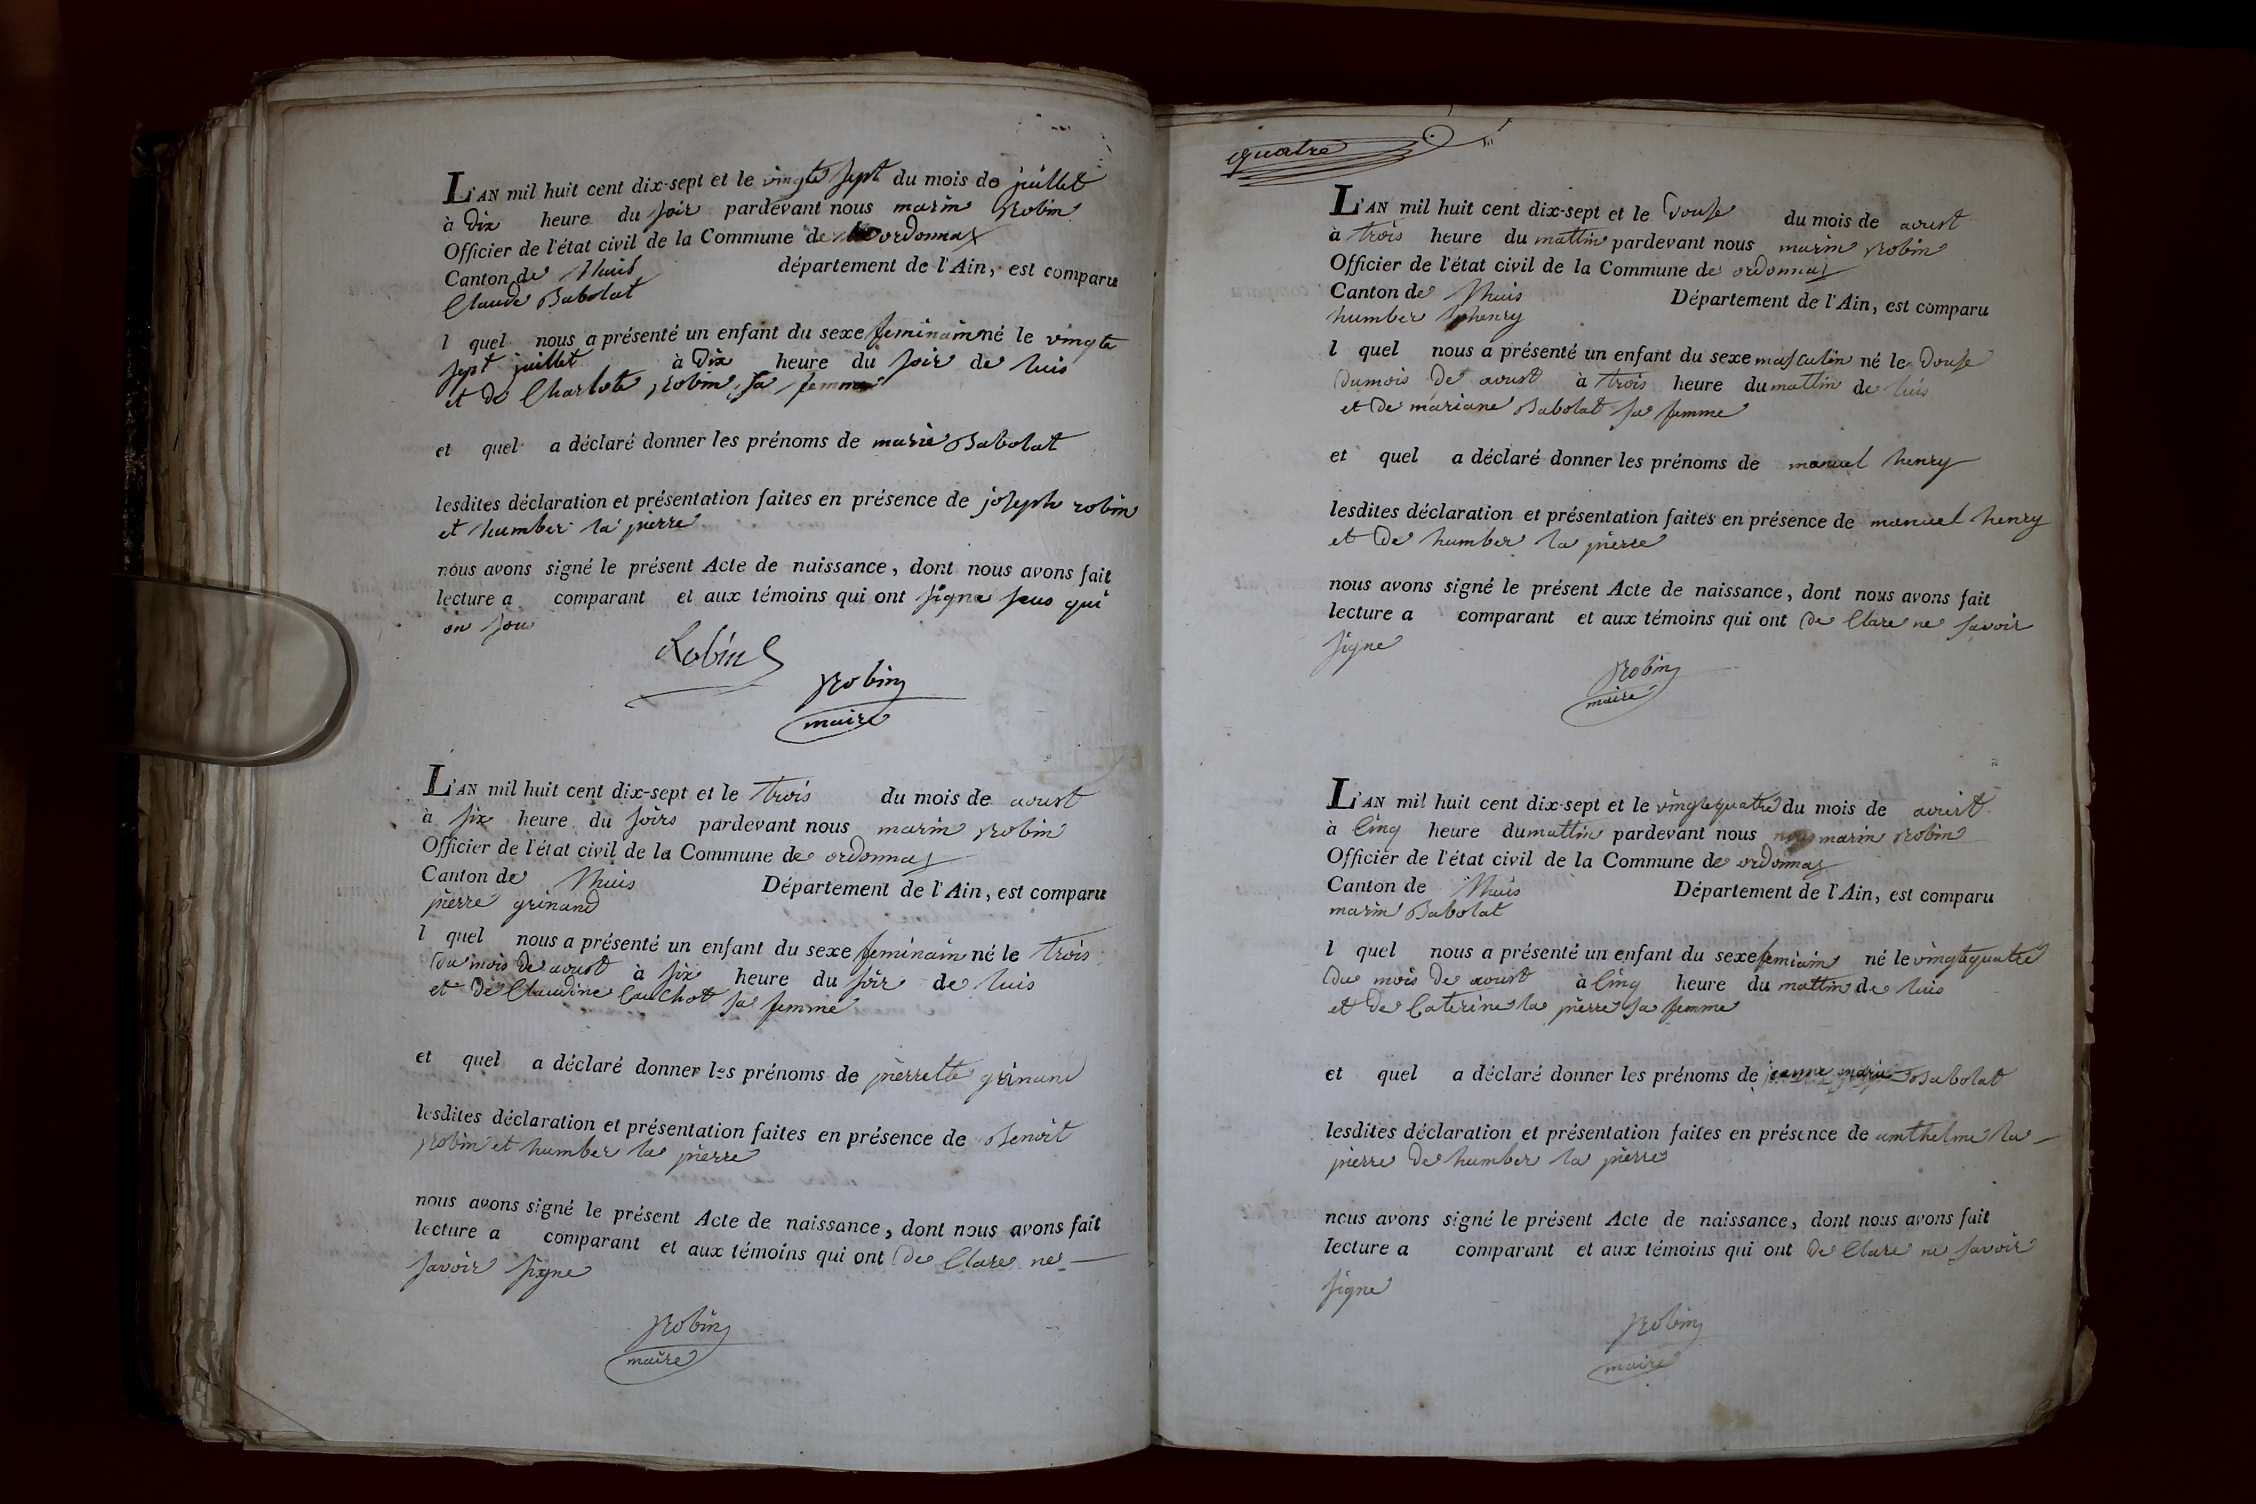 L'AN mil huit cent dix-sept et le vingte sept du mois de juillet
à dix heure du soir pardevant nous marin Robin
Officier de l'état civil de la Commune de ordonnaz
Canton de lhuis département de l'Ain, est comparu
Claude Babolat
l quel nous a présenté un enfant du sexe feminain né le vingte
sept juillet à dix heure du soir de luis
et de Charlote robin sa femme
et quel a déclaré donner les prénoms de marie Babolat
lesdites déclaration et présentation faites en présence de joseph robin
et humber la pierre
nous avons signé le présent Acte de naissance, dont nous avons fait
lecture a comparant et aux témoins qui ont signe seus qui
on sou
Robin
Robin
maire
L'AN mil huit cent dix-sept et le trois du mois de aoust
à six heure du soirs pardevant nous marin Robin
Officier de l'état civil de la Commune de ordonnaz
Canton de lhuis Département de l'Ain, est comparu
pierre grinand
l quel nous a présenté un enfant du sexe feminain né le trois
du mois de aoust à six heure du soir de luis
et de Claudine Cauchot sa femme
et quel a déclaré donner les prénoms de pierrette grinand
lesdites déclaration et présentation faites en présence de Benoit
robin et humber la pierre
nous avons signé le présent Acte de naissance, dont nous avons fait
lecture a comparant et aux témoins qui ont de Clare ne
savoir signe
Robin
maire
quatre
L'AN mil huit cent dix-sept et le douse du mois de aoust
à trois heure du mattin pardevant nous marin Robin
Officier de l'état civil de la Commune de ordonnaz
Canton de lhuis Département de l'Ain, est comparu
humber henry
l quel nous a présenté un enfant du sexe masculin né le douse
du mois de aoust à trois heure du mattin de luis
et de mariane Babolat sa femme
et quel a déclaré donner les prénoms de manuel henry
lesdites déclaration et présentation faites en présence de manuel henry
et de humber la pierre
nous avons signé le présent Acte de naissance, dont nous avons fait
lecture a comparant et aux témoins qui ont de Clare ne savoir
signe
Robin
maire
L'AN mil huit cent dix-sept et le vingtequatre du mois de aoust
à Cinq heure du mattin pardevant nous marin Robin
Officier de l'état civil de la Commune de ordonnaz
Canton de lhuis Département de l'Ain, est comparu
marin Babolat
l quel nous a présenté un enfant du sexe femiain né le vingtequatre
du mois de aoust à Cinq heure du mattin de luis
et de Caterine la pierre sa femme
et quel a déclaré donner les prénoms de jeanne marie Babolat
lesdites déclaration et présentation faites en présence de amthelme la
pierre de humber la pierre
nous avons signé le présent Acte de naissance, dont nous avons fait
lecture a comparant et aux témoins qui ont de Clare ne savoir
signe
Robin
maire